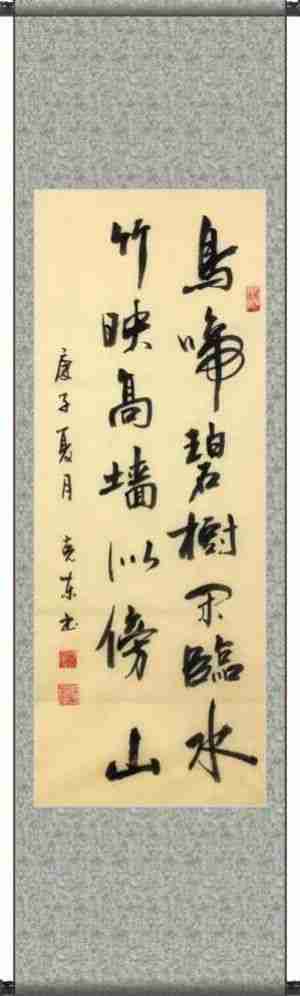 鳥啼碧樹闲臨水
竹映高墙似傍山
庚子夏月 克东书